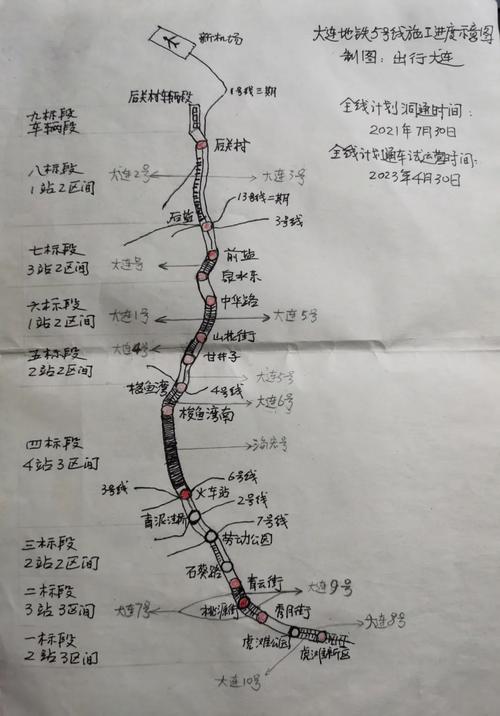 大连地铁5号线施工进度示意图
制图：出行大连
新机场
1号线三期
全线计划洞通时间：
2021年7月30日
全线计划通车试运营时间：
2023年4月30日
后关村车辆段
九标段
车辆段
后关村
八标段
1站2区间
大连2号
大连3号
13号线二期
后盐
3号线
七标段
3站2区间
大连号
前盐
泉水东
六标段
1站2区间
中华路
大连1号
大连5号
山花街
五标段
2站2区间
大连4号
甘井子
大连5号
梭鱼湾
4号线
大连6号
梭鱼湾南
四标段
4站3区间
海宏号
3号线
火车站
6号线
2号线
青泥洼桥
7号线
劳动公园
三标段
2站2区间
石葵路
青云街
大连9号
二标段
3站3区间
大连7号
桃源街
秀月街
大连8号
一标段
2站3区间
虎滩公园
虎滩新区
大连10号